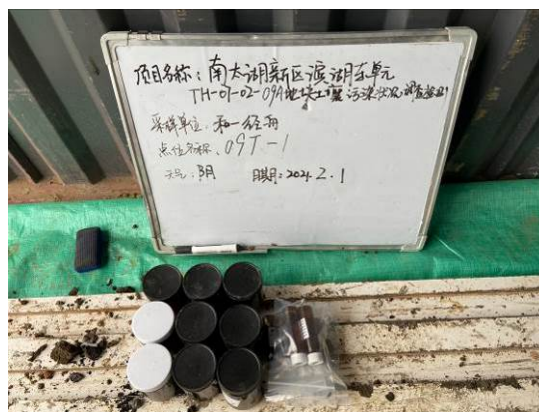 项目名称：南太湖新区滨湖东单元
TH-01-02-09A地块土壤污染状况调查
采样单位：
点位名称：09T-1
天气：阴 日期：2024.2.1